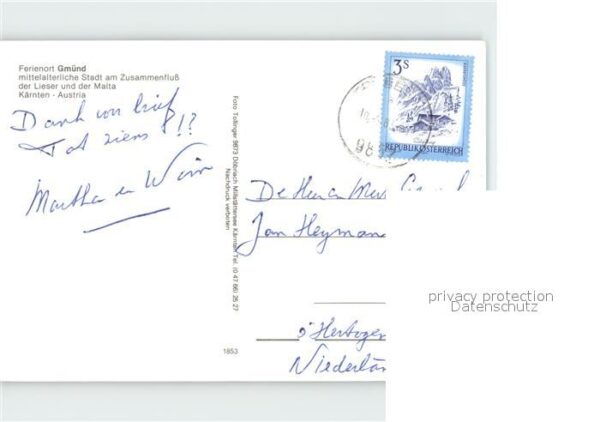 Ferienort Gmünd
mittelalterliche Stadt am Zusammenfluß
der Lieser und der Malta
Kärnten - Austria
Dank voor brief
Tot ziens !!?
Martha en Wim
Foto Tollinger 9873 Döbriach Millstättersee Kärnten Tel. (0 42 46)
Nachdruck verboten
1853
3S
REPUBLIK ÖSTERREICH
De Heer en Mevr.
Jan Heyman
's Hertoge
Niederlän
privacy protection
Datenschutz